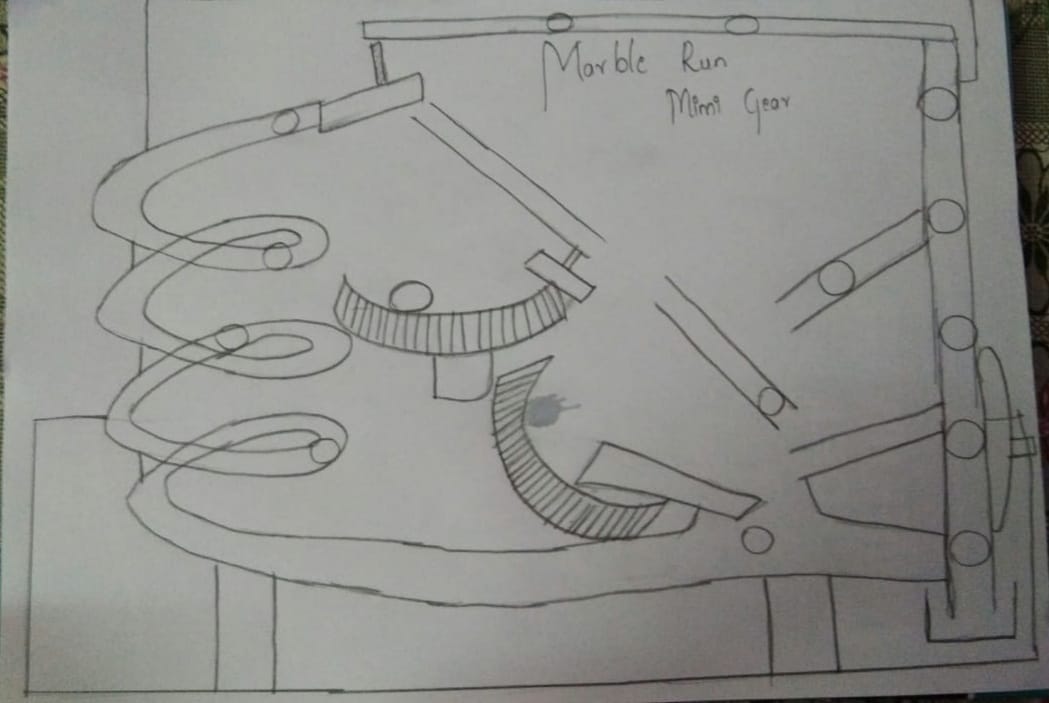 Marble Run
Mimi Gear